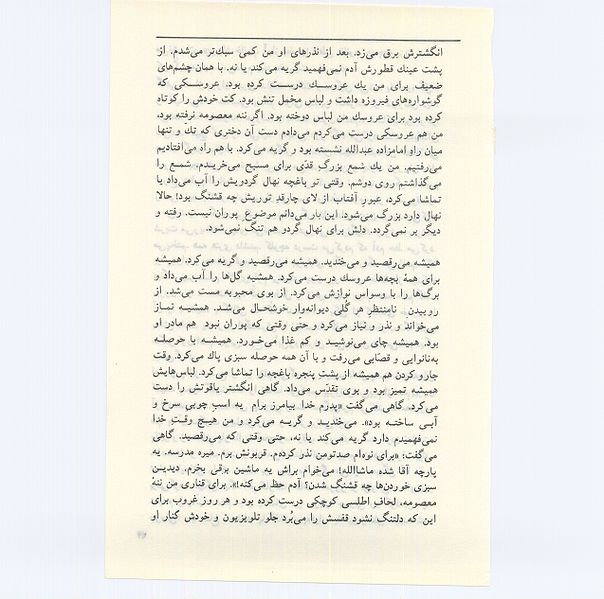 انگشترش برق می‌زد. بعد از نذرهای او من کمی سبك‌تر می‌شدم. از
پشت عینك قطورش آدم نمی‌فهمید گریه می‌کند یا نه. با همان چشم‌های
ضعیف برای من یك عروسك درست کرده بود. عروسـکی که
گوشواره‌های فیروزه داشت و لباس مخمل تنش بود. کت خودش را کوتاه
کرده بود برای عروسك من لباس دوخته بود. اگر ننه معصومه نرفته بود،
من هم عروسکی درست می‌کردم می‌دادم دست آن دختری که تك و تنها
میان راهِ امامزاده عبدالله نشسته بود و گریه می‌کرد. با هم راه می‌افتادیم
می‌رفتیم. من یك شمع بزرگِ قدّی برای مسیح می‌خریدم. شمع را
می‌گذاشتم روی دوشم. وقتی تو باغچه نهال گردویش را آب می‌داد یا
تماشا می‌کرد، عبورِ آفتاب از لای چارقدِ توریش چه قشنگ بود! حالا
نهال دارد بزرگ می‌شود. این بار می‌دانم موضوع پوران نیست. رفته و
دیگر بر نمی‌گردد. دلش برای نهال گردو هم تنگ نمی‌شود.
همیشه می‌رقصید و می‌خندید. همیشه می‌رقصید و گریه می‌کرد. همیشه
برای همهٔ بچه‌ها عروسك درست می‌کرد. همشیه گل‌ها را آب می‌داد و
برگ‌ها را با وسواس نوازش می‌کرد. از بوی محبوبه مست می‌شد. از
روییدن نامنتظرِ هر گُلی دیوانه‌وار خوشحال می‌شد. همشیـه نمـاز
می‌خواند و نذر و نیاز می‌کرد و حتّی وقتی که پوران نبود هم مادرِ او
بود. همیشه چای می‌نوشیـد و کم غذا می‌خـورد. همیشـه با حوصلـه
به‌نانوایی و قصّابی می‌رفت و با آن همه حوصله سبزی پاك می‌کرد. وقت
جارو کردن هم همیشه از پشتِ پنجره باغچه را تماشا می‌کرد. لباس‌هایش
همیشه تمیز بود و بوی تقدّس می‌داد. گاهی انگشتر یاقوتش را دست
می‌کرد. گاهی می‌گفت «پدرم خدا بیامرز برام یه اسبِ چوبی سرخ و
آبـی ساختـه بود». می‌خندیـد و گریـه می‌کرد و من هیـچ وقـتِ خدا
نمی‌فهمیدم دارد گریه می‌کند یا نه، حتی وقتی که می‌رقصید. گاهی
می‌گفت: «برای نوه‌ام صدتومن نذر کرده‌م. قربونش برم. میره مدرسه. یه
پارچه آقا شده ماشاالله! می‌خوام براش یه ماشین برقی بخرم. دیدین
سبزی خوردن‌ها چه قشنگ شدن؟ آدم حظ می‌کنه!». برای قناری من ننهٔ
معصومه، لحافِ اطلسی کوچکی درست کرده بود و هر روز غروب برای
این که دلتنگ نشود قفسش را می‌بُرد جلو تلویزیون و خودش کنار او